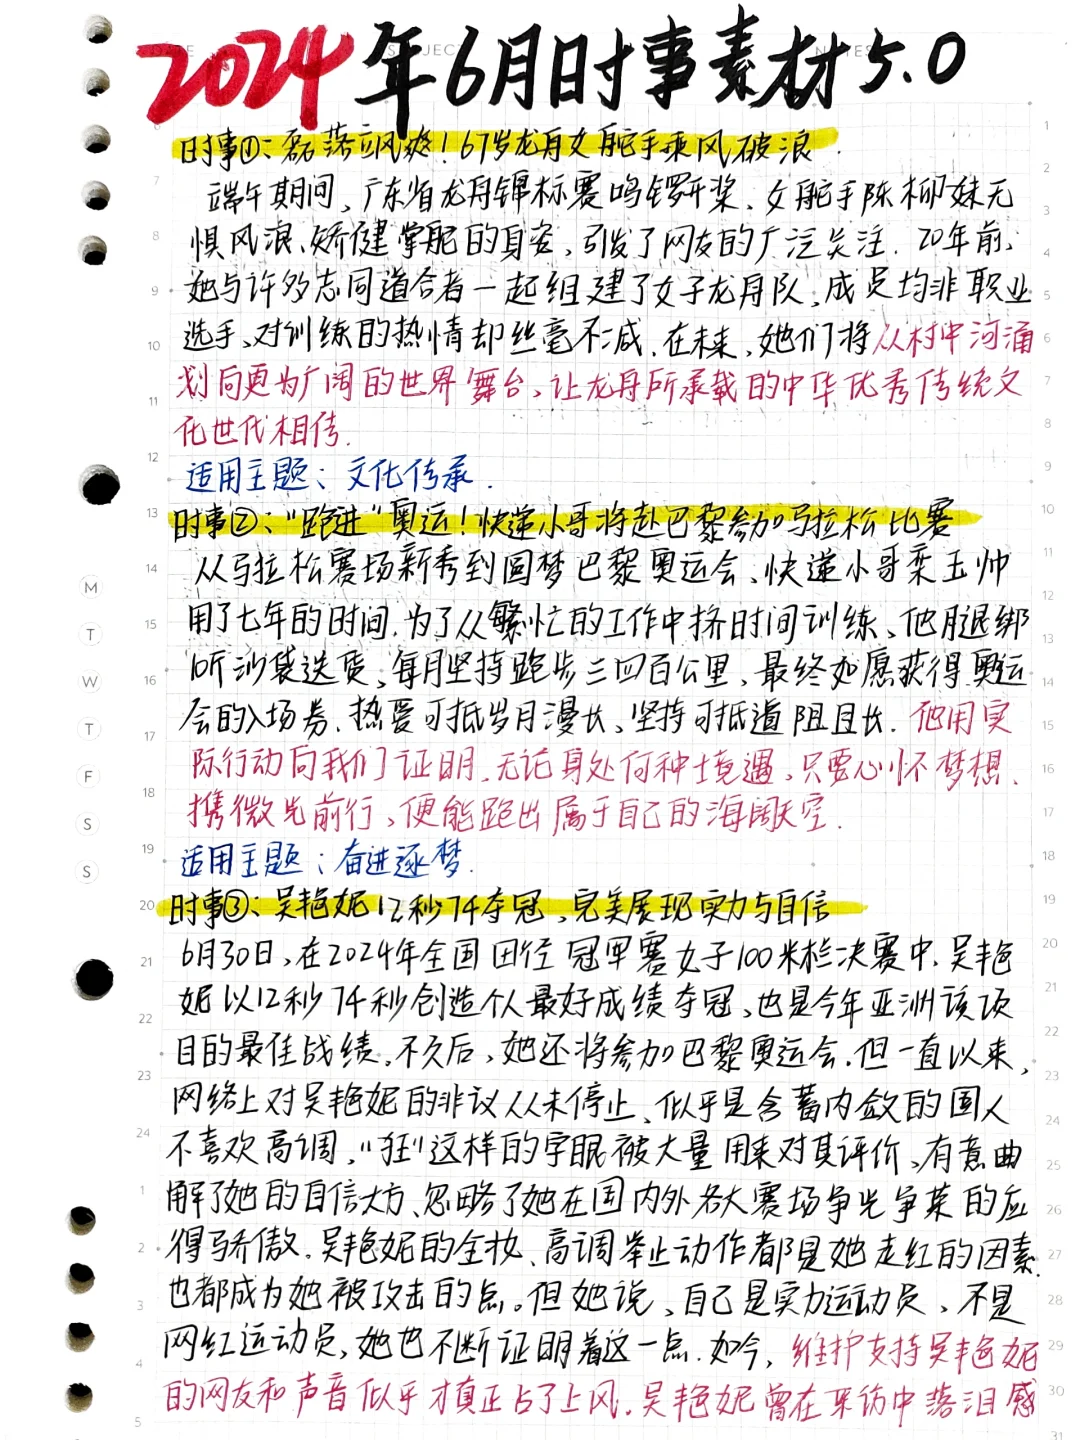 2024年6月时事素材5.0
DATE SUBJECT NOTES
时事①:磊落飒爽!67岁龙舟女舵手乘风破浪.
端午期间,广东省龙舟锦标赛鸣锣开桨、女舵手陈柳妹无
惧风浪、矫健掌舵的身姿,引发了网友的广泛关注.20年前,
她与许多志同道合者一起组建了女子龙舟队,成员均非职业
选手,对训练的热情却丝毫不减.在未来,她们将从村中河涌
划向更为广阔的世界舞台,让龙舟所承载的中华优秀传统文
化世代相传.
适用主题:文化传承.
时事②:“跑进”奥运!快递小哥将赴巴黎参加马拉松比赛
从马拉松赛场新秀到圆梦巴黎奥运会、快递小哥栾玉帅
用了七年的时间.为了从繁忙的工作中挤时间训练、他腿绑
10斤沙袋送货,每月坚持跑步三四百公里,最终如愿获得奥运
会的入场券.热爱可抵岁月漫长,坚持可抵道阻且长.他用实
际行动向我们证明,无论身处何种境遇,只要心怀梦想、
携微光前行,便能跑出属于自己的海阔天空.
适用主题:奋进逐梦.
时事③:吴艳妮12秒74夺冠,完美展现实力与自信
6月30日,在2024年全国田径冠军赛女子100米栏决赛中,吴艳
妮以12秒74秒创造个人最好成绩夺冠,也是今年亚洲该项
目的最佳战绩.不久后,她还将参加巴黎奥运会.但一直以来,
网络上对吴艳妮的非议从未停止、似乎是含蓄内敛的国人
不喜欢高调,“狂”这样的字眼被大量用来对其评价,有意曲
解了她的自信大方、忽略了她在国内外各大赛场争光争荣的应
得骄傲.吴艳妮的全妆、高调举止动作都是她走红的因素.
也都成为她被攻击的点。但她说,自己是实力运动员,不是
网红运动员,她也不断证明着这一点.如今,维护支持吴艳妮
的网友和声音似乎才真正占了上风.吴艳妮曾在采访中落泪感
M
T
W
T
F
S
S